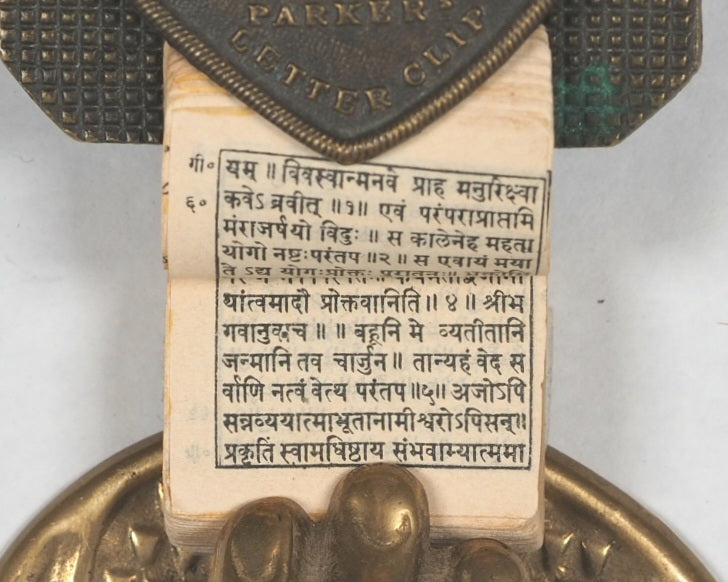 PARKER'S
LETTER CLIP
गी॰ यम् ॥ विवस्वान्मनवे प्राह मनुरिक्ष्वा
६॰ कवेऽ ब्रवीत् ॥१॥ एवं परंपराप्राप्तमि
मंराजर्षयो विदुः ॥ स कालेनेह महता
योगो नष्टःपरंतप ॥२॥ स एवायं मया
ते ऽद्य योगःप्रोक्तः पुरातनः॥
थांत्वमादौ प्रोक्तवानिति॥ ४॥ श्रीभ
गवानुवाच ॥ ॥ बहूनि मे व्यतीतानि
जन्मानि तव चार्जुन॥ तान्यहं वेद स
र्वाणि नत्वं वेत्थ परंतप॥५॥ अजोऽपि
सन्नव्ययात्माभूतानामीश्वरोऽपिसन्॥
प्रकृतिं स्वामधिष्ठाय संभवाम्यात्ममा